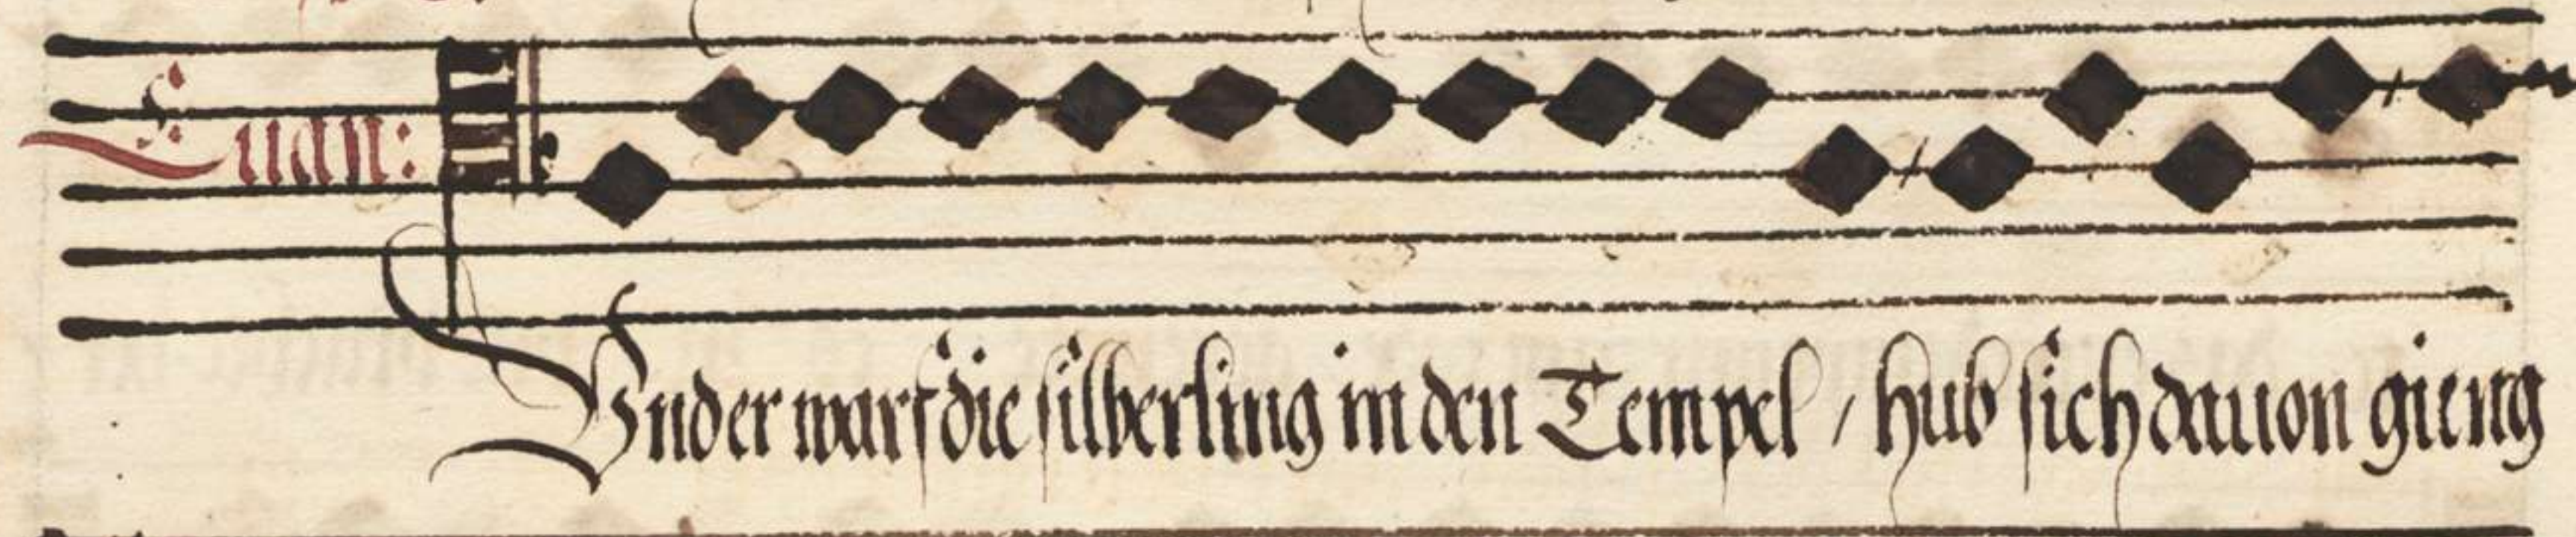 Euan:
Vnd er warf die silberling in den Tempel / hub sich dauon gieng